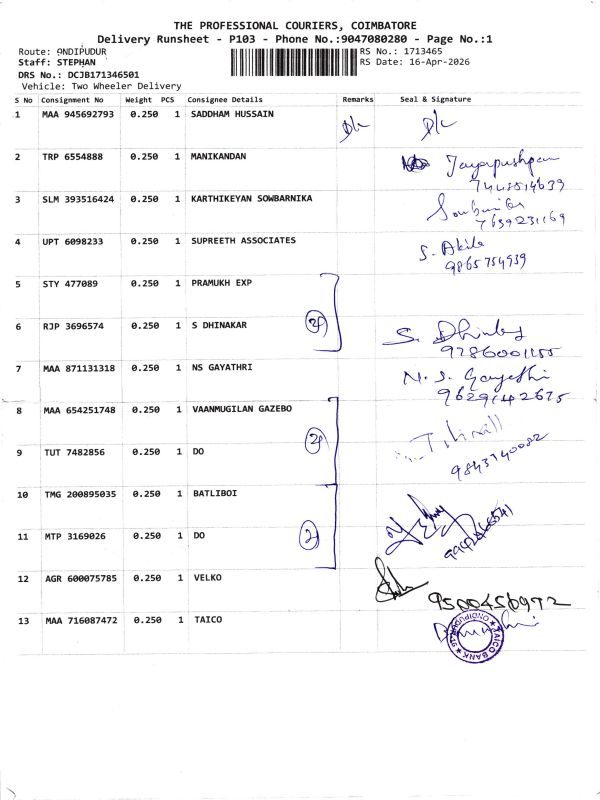 THE PROFESSIONAL COURIERS, COIMBATORE
Delivery Runsheet - P103 - Phone No.:9047080280 - Page No.:1
Route: ONDIPUDUR RS No.: 1713465
Staff: STEPHAN RS Date: 16-Apr-2026
DRS No.: DCJB171346501
Vehicle: Two Wheeler Delivery
S No Consignment No Weight PCS Consignee Details Remarks Seal & Signature
1 MAA 945692793 0.250 1 SADDHAM HUSSAIN D/L D/L
2 TRP 6554888 0.250 1 MANIKANDAN
3 SLM 393516424 0.250 1 KARTHIKEYAN SOWBARNIKA
7639231169
4 UPT 6098233 0.250 1 SUPREETH ASSOCIATES S. Akila
9865754939
5 STY 477089 0.250 1 PRAMUKH EXP
6 RJP 3696574 0.250 1 S DHINAKAR S.
9286001155
7 MAA 871131318 0.250 1 NS GAYATHRI N. S. Gayathri
9629142675
8 MAA 654251748 0.250 1 VAANMUGILAN GAZEBO
9 TUT 7482856 0.250 1 DO
9843740082
10 TMG 200895035 0.250 1 BATLIBOI
11 MTP 3169026 0.250 1 DO 2
12 AGR 600075785 0.250 1 VELKO
9500456972
13 MAA 716087472 0.250 1 TAICO
TAICO BANK ONDIPUDUR